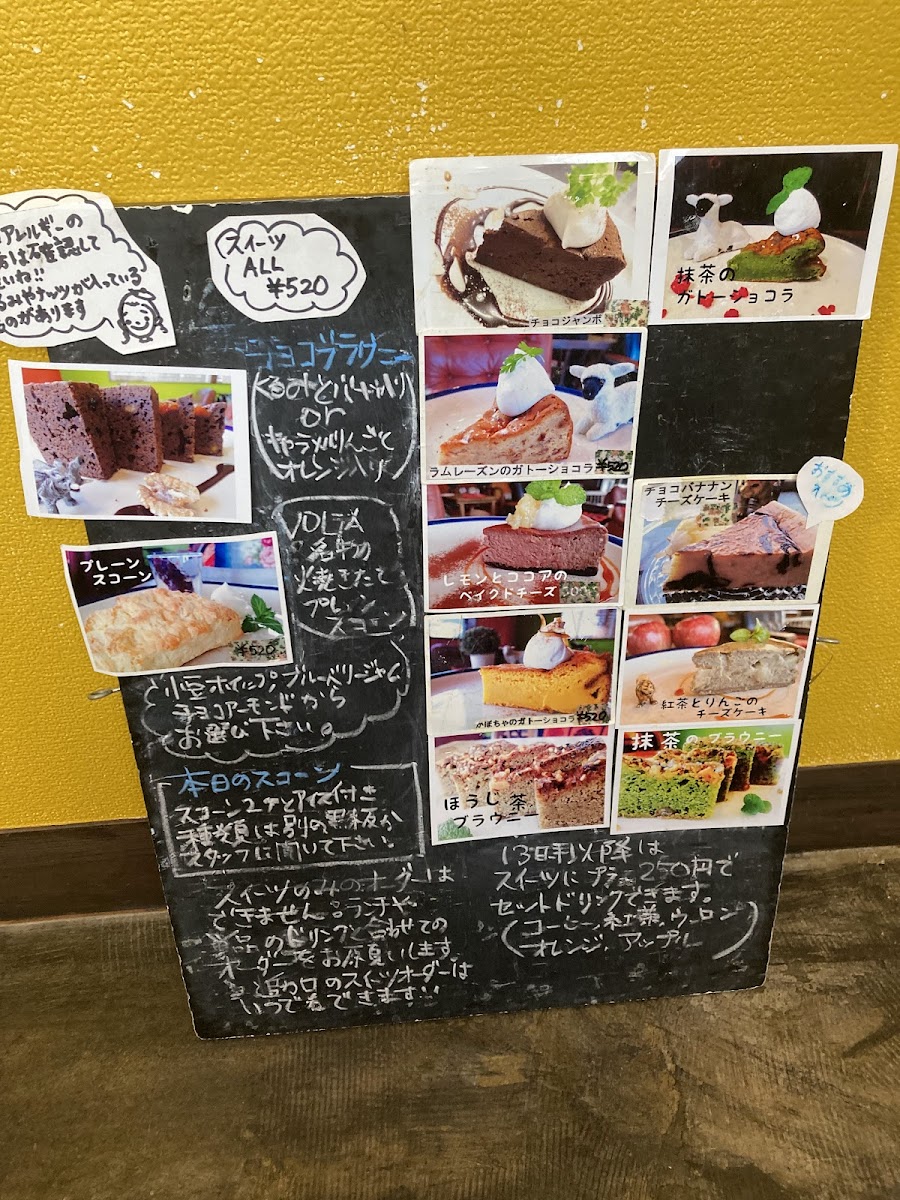 アレルギーの
は不確認して
いね!!
るみやナッツが入っている
ものがあります
スイーツ
ALL
¥520
チョコブラウニー
くるみと
or
キャラメルりんごと
オレンジ
プレーン
スコーン
¥520
名物の
焼きたて
プレーン
スコーン
小豆ホイップ,ブルーベリージャム
チョコアーモンドから
お選び下さい。
本日のスコーン
スコーン2ケとアイス付き
種類は別の黒板か
スタッフに聞いて下さい。
スイーツのみのオーダーは
できません。ランチや
のドリンクと合わせての
オーダーをお願いします。
のスイーツオーダーは
いつでもできます
チョコジャンボ
抹茶の
ガトーショコラ
ラムレーズンのガトーショコラ
¥520
レモンとココアの
ベイクドチーズ
チョコバナナン
チーズケーキ
かぼちゃのガトーショコラ
¥520
紅茶とりんごの
チーズケーキ
ほうじ茶
ブラウニー
抹茶のブラウニー
13時以降は
スイーツにプラス250円で
セットドリンクできます。
(コーヒー,紅茶,ウーロン
オレンジ,アップル)